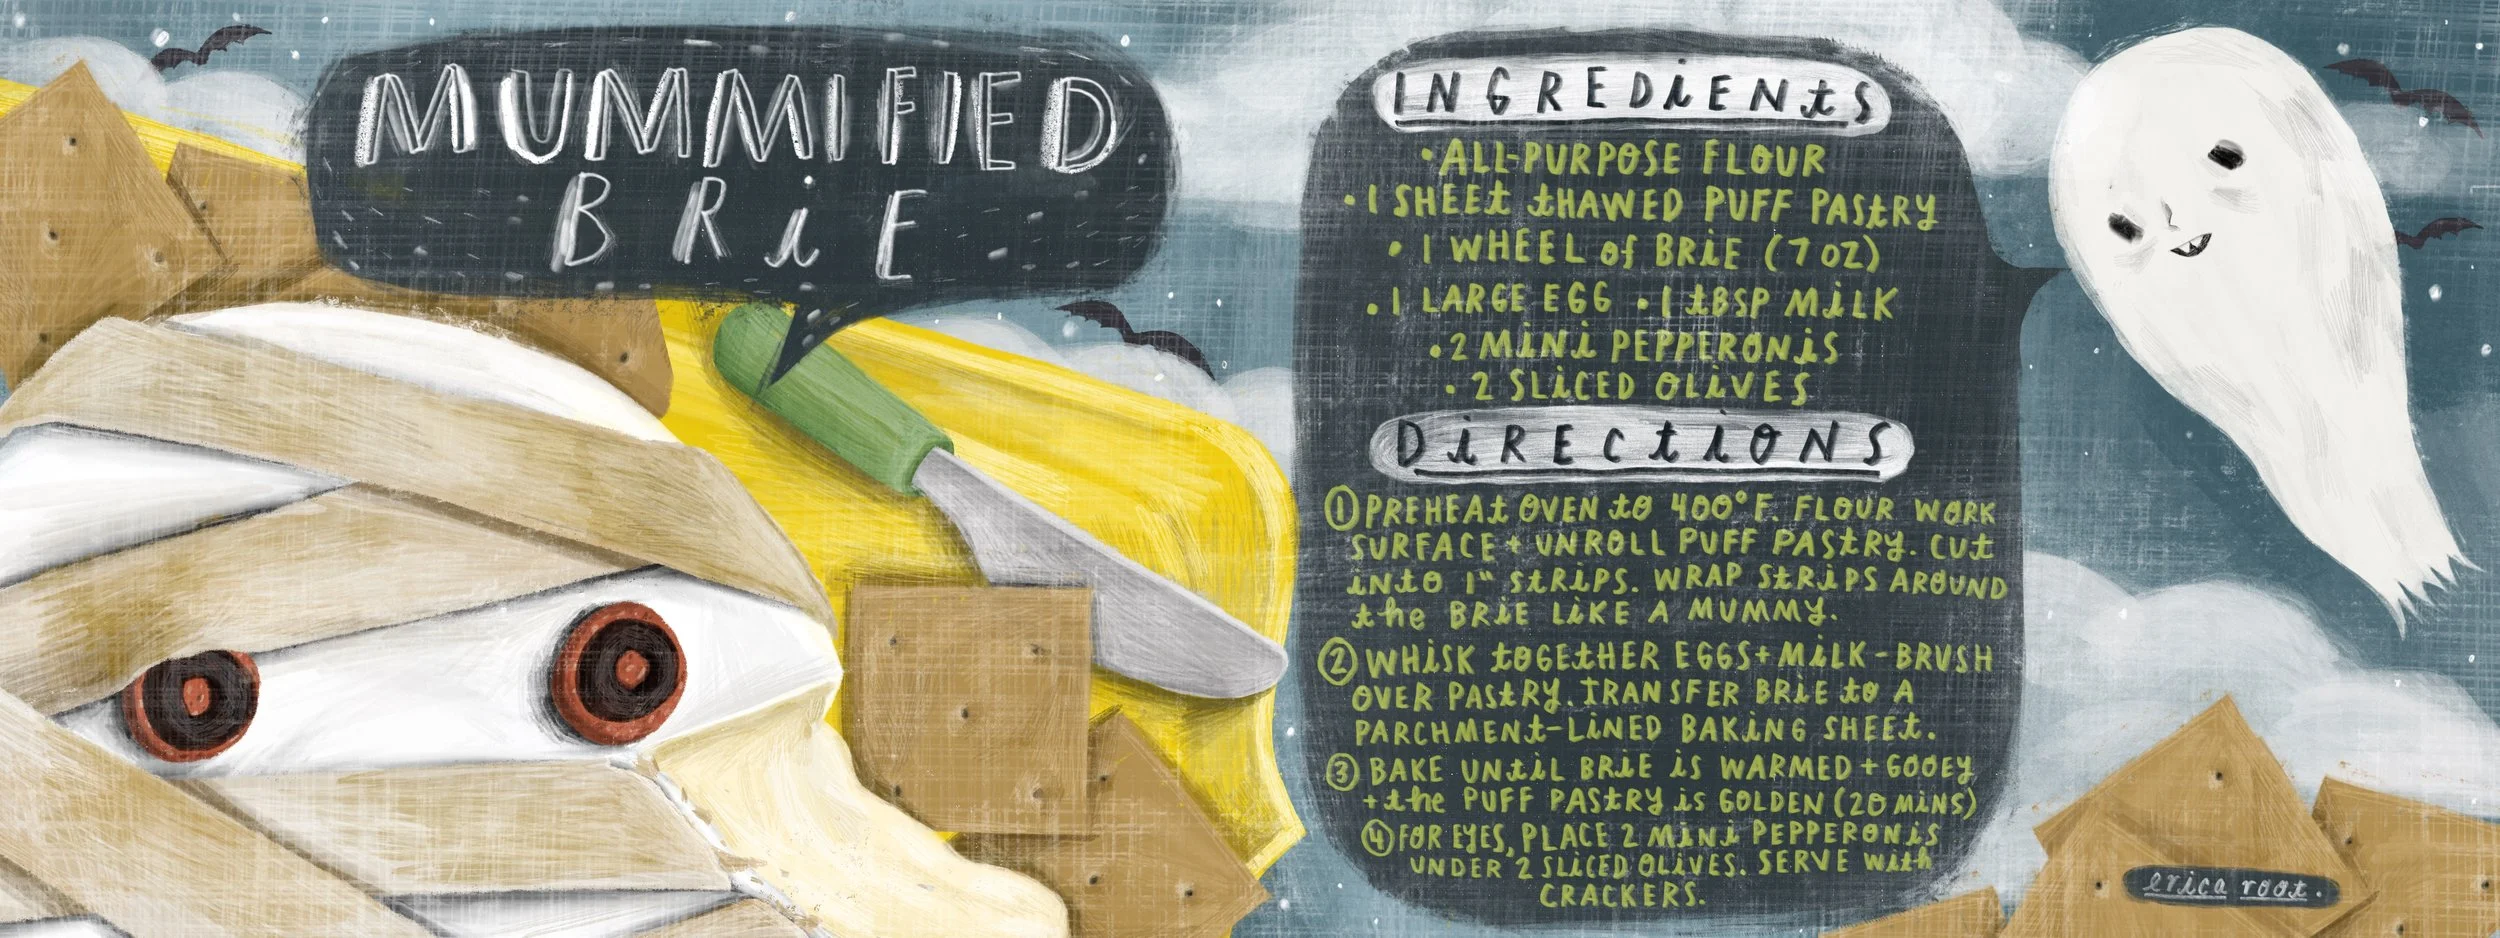 MUMMIFIED
BRiE
INGREDiENtS
• ALL-PURPOSE FLOUR
• 1 SHEEt tHAWED PUFF PAStRY
• 1 WHEEL of BRiE (7 OZ)
• 1 LARGE EGG • 1 tBSP MiLK
• 2 MiNi PEPPERONiS
• 2 SLiCED OLiVES
DiRECtiONS
① PREHEAt OVEN tO 400° F. FLOUR WORK
SURFACE + UNROLL PUFF PAStRY. CUt
iNtO 1" StRiPS. WRAP StRiPS AROUND
the BRiE LiKE A MUMMY.
② WHiSK tOGEtHER EGGS + MiLK - BRUSH
OVER PAStRY. TRANSFER BRiE tO A
PARCHMENt-LiNED BAKiNG SHEEt.
③ BAKE UNtiL BRiE iS WARMED + GOOEY
+ the PUFF PAStRY iS GOLDEN (20 MiNS)
④ FOR EYES, PLACE 2 MiNi PEPPERONiS
UNDER 2 SLiCED OLiVES. SERVE with
CRACKERS.
erica root.